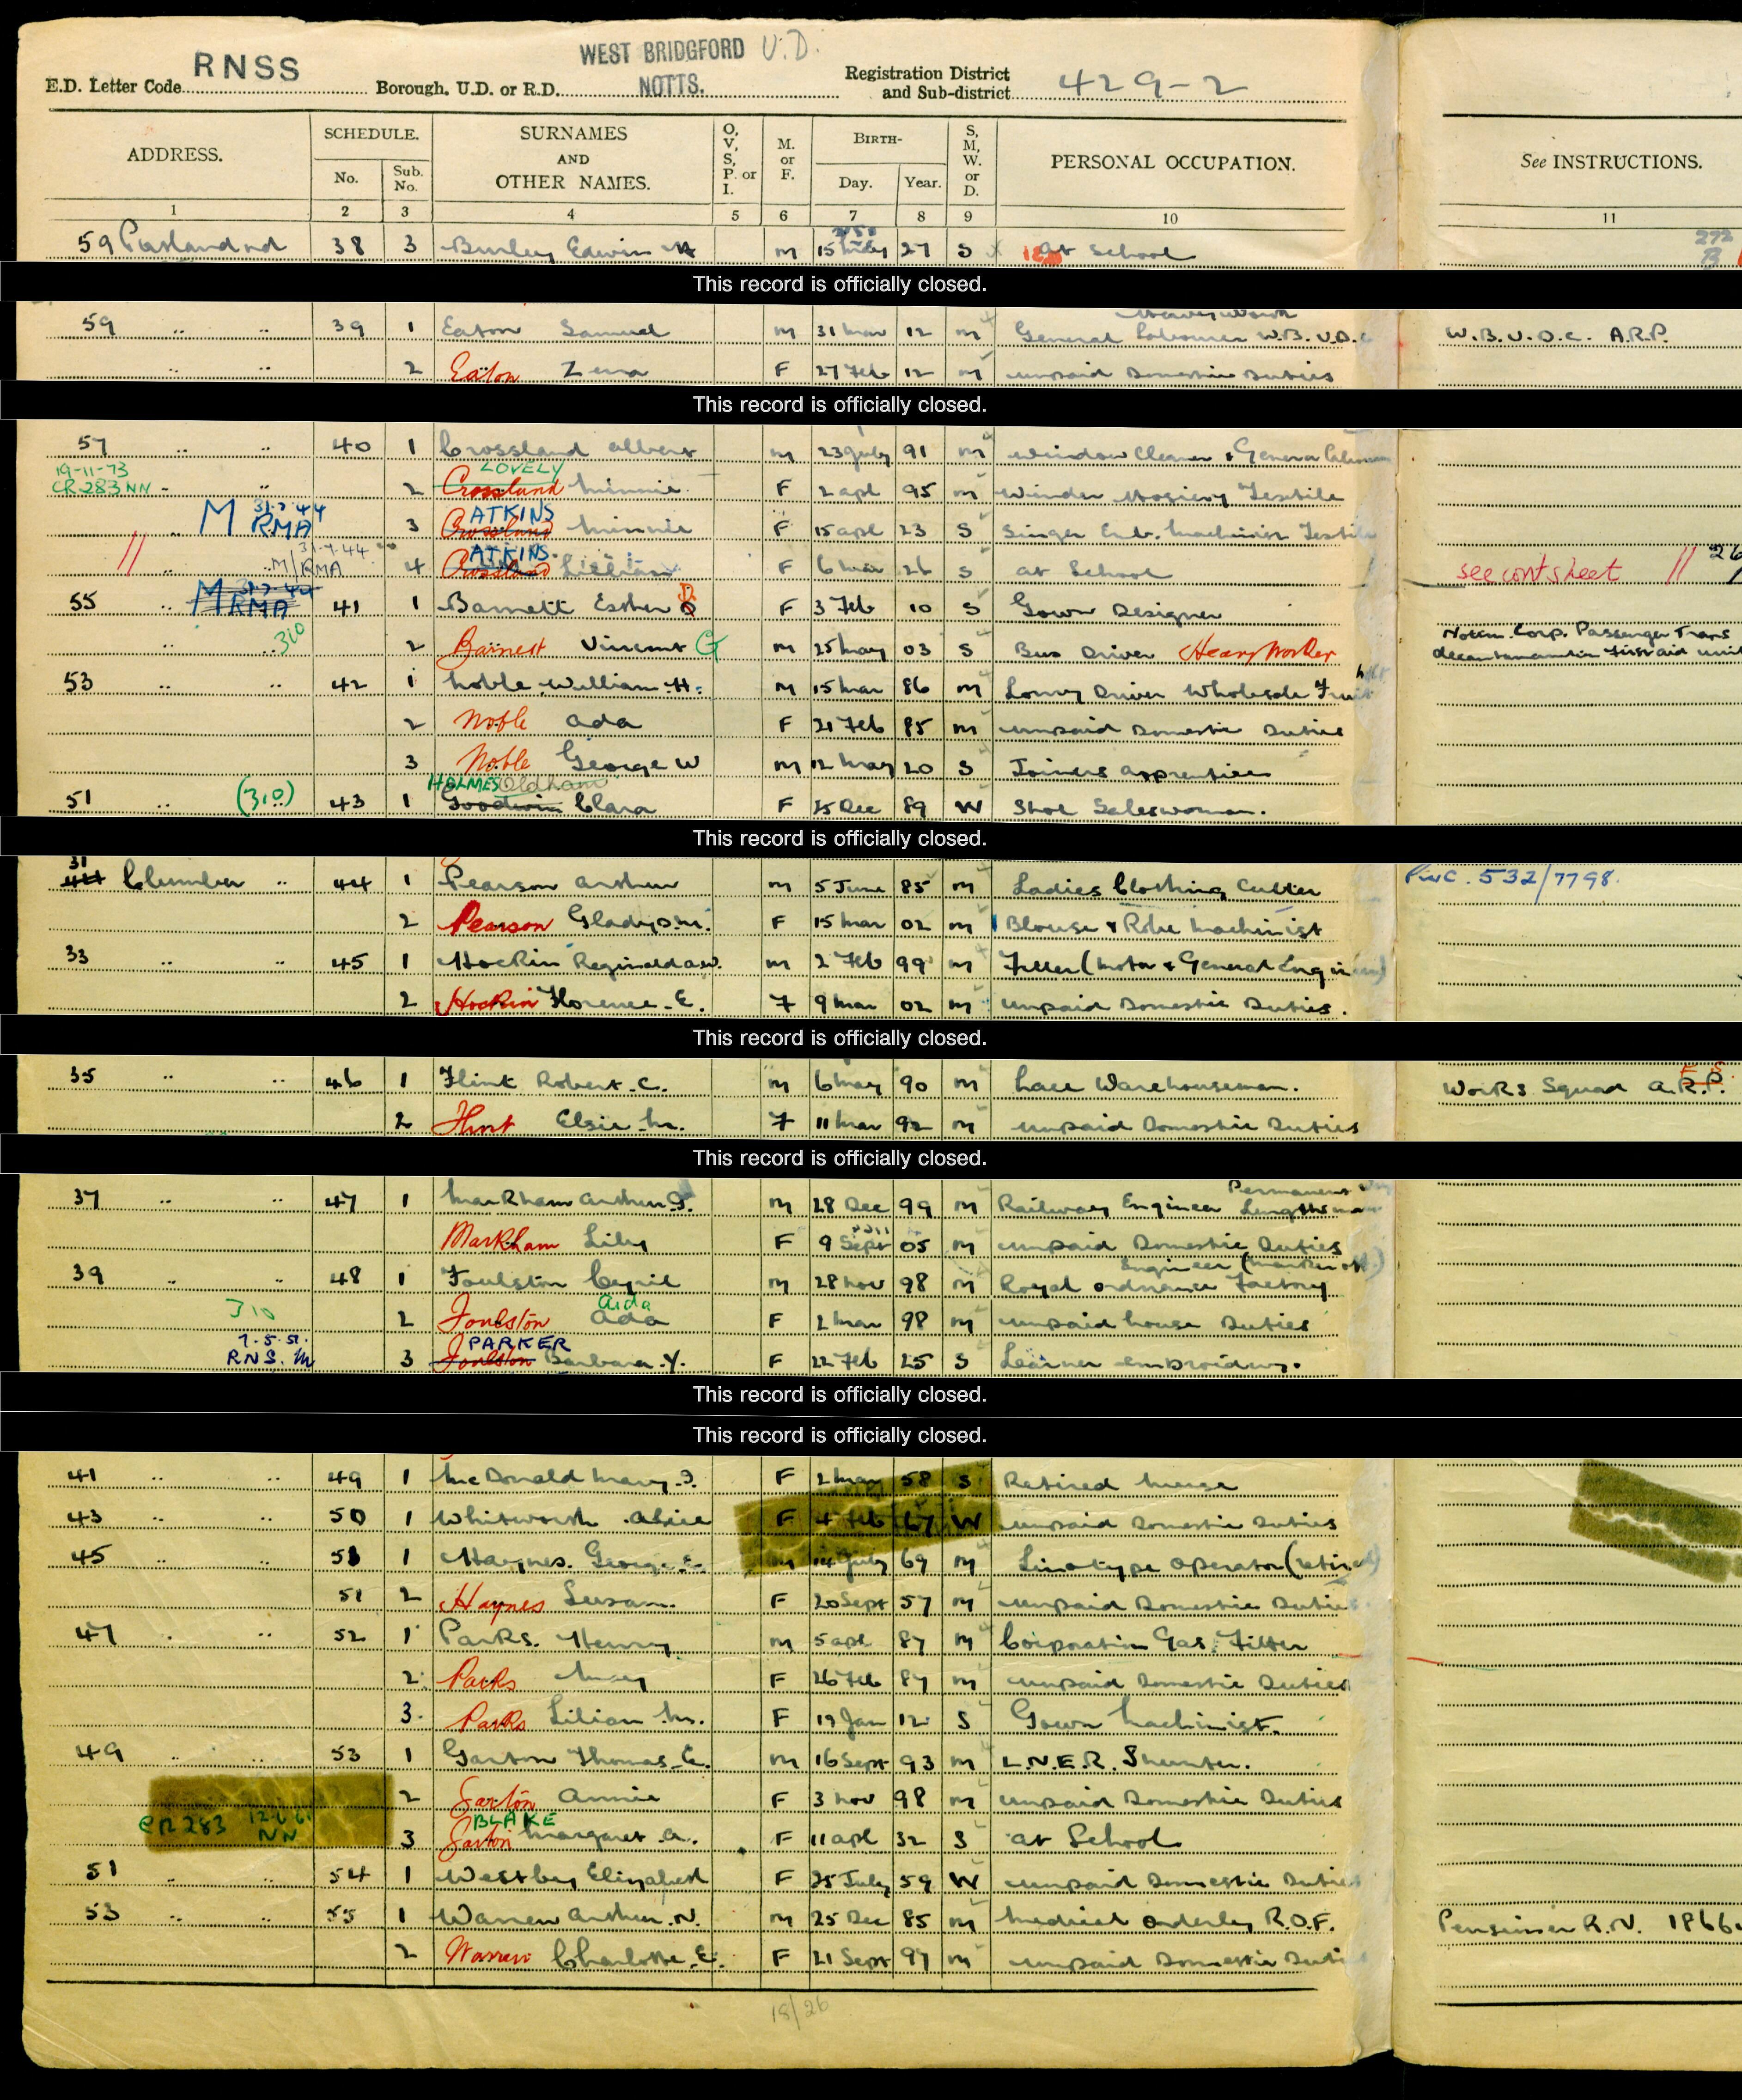 RNSS WEST BRIDGFORD U.D.
E.D. Letter Code Borough, U.D. or R.D. NOTTS. Registration District and Sub-district 429-2
ADDRESS. SCHEDULE. SURNAMES AND OTHER NAMES. O, V, S, P. or I. M. or F. BIRTH- S, M, W. or D. PERSONAL OCCUPATION. See INSTRUCTIONS.
No. Sub. No. Day. Year.
1 2 3 4 5 6 7 8 9 10 11
59 38 3 Burley Edwin M 15 May 27 S At School 272 B
This record is officially closed.
59 " " 39 1 Eaton Samuel M 31 Mar 12 M Heavy Work General Labourer W.B.U.D.C W.B.U.D.C. A.R.P.
" " 2 Eaton Zena F 27 Feb 12 M Unpaid Domestic Duties
This record is officially closed.
57 " " 40 1 Crossland Albert M 23 July 91 M Window Cleaner & General
19-11-73 LOVELY
CR 283 NN " 2 Crossland Minnie F 2 Apl 95 M Winder Hosiery Textile
M 31.7.44 RMA ATKINS
" 3 Crossland Minnie F 15 Apl 23 S Singer Emb. Machinist Textile
// M/RMA ATKINS
" 4 Crossland Lillian F 6 Mar 26 S At School see cont sheet // 26
55 " M RMA 41 1 Barnett Esther F 3 Feb 10 S Gown Designer
" 310 2 Barnett Vincent M 25 May 03 S Bus Driver Heavy Worker Nottm. Corp. Passenger Trans Decontamination First aid unit
53 " " 42 1 Noble William H. M 15 Mar 86 M Lorry Driver Wholesale Fruit
2 Noble Ada F 21 Feb 85 M Unpaid Domestic Duties
3 Noble George W M 12 May 20 S Joiners Apprentice
HOLMES Oldham
51 " (310) 43 1 Goodwin Clara F 25 Dec 89 W Shoe Saleswoman.
This record is officially closed.
31 Clumber " 44 1 Pearson Arthur M 5 June 85 M Ladies Clothing Cutter 532/7798.
2 Pearson Gladys M. F 15 Mar 02 M Blouse & Robe Machinist
33 " " 45 1 Hockin Reginald A.W. M 2 Feb 99 M Fitter (Motor & General Engineer)
2 Hockin Florence E. F 9 Mar 02 M Unpaid Domestic Duties.
This record is officially closed.
35 " " 46 1 Flint Robert C. M 6 May 90 M Lace Warehouseman. Works Squad A.R.P.
2 Flint Elsie M. F 11 Mar 92 M Unpaid Domestic Duties
This record is officially closed.
37 " " 47 1 Markham Arthur G. M 28 Dec 99 M Railway Engineer Permanent Way Lengthsman
Markham Lily F 9 Sept 05 M Unpaid Domestic Duties
39 " " 48 1 Foulston Cyril M 28 Nov 98 M Engineer (Marker off) Royal Ordnance Factory
310 Aida
2 Foulston Ada F 2 Mar 98 M Unpaid House Duties
7.5.51. PARKER
RNS. M 3 Foulston Barbara Y. F 22 Feb 25 S Learner Embroidery.
This record is officially closed.
This record is officially closed.
41 " " 49 1 McDonald Mary J. F 2 May 58 S Retired Nurse
43 " " 50 1 Whitworth Alice F 4 Feb 67 W Unpaid Domestic Duties
45 " " 51 1 Haynes George E. M 14 July 69 M Linotype Operator (retired)
51 2 Haynes Susan. F 20 Sept 57 M Unpaid Domestic Duties
47 " " 52 1 Parks. Henry M 5 Apl 87 M Corporation Gas Fitter
2 Parks F 26 Feb 87 M Unpaid Domestic Duties
3 Parks Lilian M. F 19 Jan 12 S Gown Machinist.
49 " " 53 1 Garton Thomas E. M 16 Sept 93 M L.N.E.R. Shunter.
2 Garton Annie F 3 Nov 98 M Unpaid Domestic Duties
CR 283 NN BLAKE
3 Garton Margaret A. F 11 Apl 32 S At School
51 " " 54 1 Westbey Elizabeth F 25 July 59 W Unpaid Domestic Duties
53 " " 55 1 Warren Arthur N. M 25 Dec 85 M Medical Orderly R.O.F. Pensioner R.N. 1866
2 Warren Charlotte E. F 21 Sept 97 M Unpaid Domestic Duties
18/26